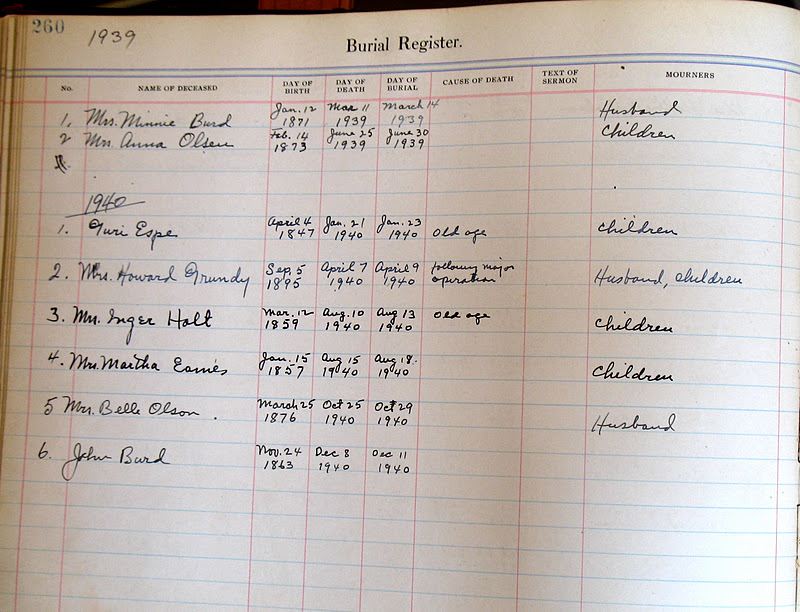 260 1939
Burial Register.
No. NAME OF DECEASED DAY OF BIRTH DAY OF DEATH DAY OF BURIAL CAUSE OF DEATH TEXT OF SERMON MOURNERS
1. Mrs. Minnie Burd Jan. 12 1871 Mar 11 1939 March 14 1939 Husband
2 Mrs. Anna Olsen Feb. 14 1873 June 25 1939 June 30 1939 Children
1940
1. Guri Espe April 4 1847 Jan. 21 1940 Jan. 23 1940 old age Children
2. Mrs. Howard Grundy Sep. 5 1895 April 7 1940 April 9 1940 following major operation Husband, Children
3. Mrs. Inger Holt Mar. 12 1859 Aug. 10 1940 Aug 13 1940 old age Children
4. Mrs. Martha Eames Jan. 15 1857 Aug 15 1940 Aug 18. 1940 Children
5 Mrs. Belle Olson. March 25 1876 Oct 25 1940 Oct 29 1940 Husband
6. John Burd Nov. 24 1863 Dec 8 1940 Dec 11 1940